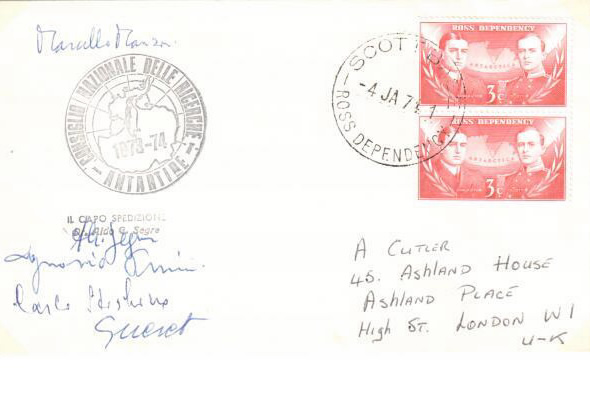 Marcello Manzoni
CONSIGLIO NAZIONALE DELLE RICERCHE
1973-74
ANTARTIDE
SCOTT B
-4 JA 74
ROSS DEPENDENCY
ROSS DEPENDENCY
ANTARCTICA
3c
ROSS DEPENDENCY
ANTARCTICA
3c
IL CAPO SPEDIZIONE
Aldo G. Segre
Carlo Stocchino
A CUTLER
45. Ashland House
Ashland Place
High St. London W1
U-K